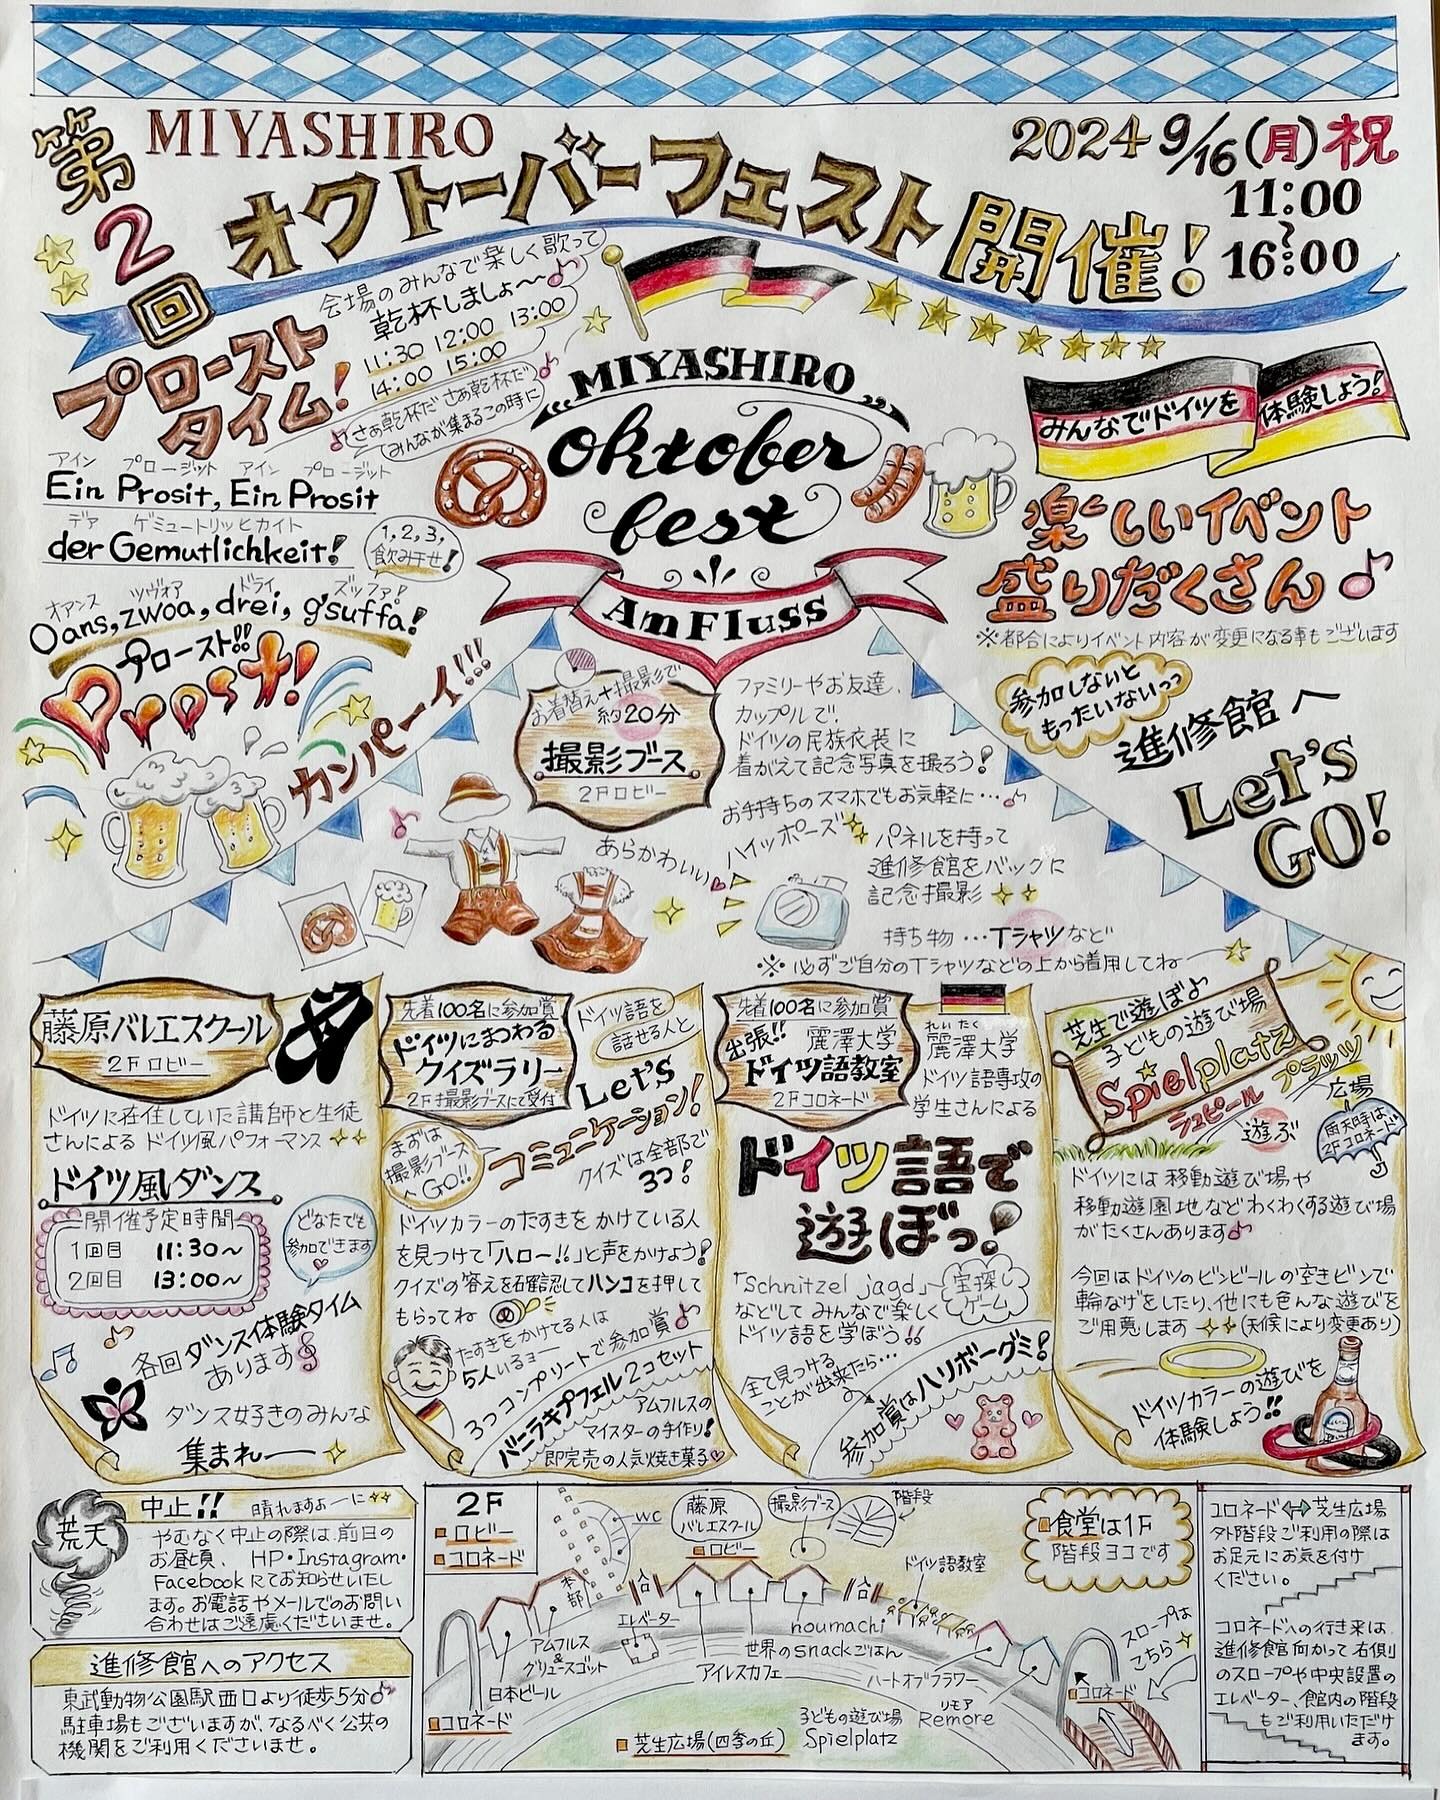 第2回
MIYASHIRO
オクトーバーフェスト開催！
2024 9/16(月)祝
11:00
〜
16:00
プロースト
タイム！
会場のみんなで楽しく歌って
乾杯しましょ〜〜♪
11:30 12:00 13:00
14:00 15:00
♪さぁ乾杯だ さぁ乾杯だ♪
みんなが集まるこの時に
アイン プロージット アイン プロージット
Ein Prosit, Ein Prosit
デア ゲミュートリッヒカイト
der Gemutlichkeit!
1,2,3,
飲み干せ!
オアンス ツヴォア ドライ ズッファ!
Oans, zwoa, drei, g'suffa!
プロースト!!
Prost!
カンパーイ!!!
MIYASHIRO
oktober
best
Am Fluss
みんなでドイツを体験しよう!
楽しいイベント
盛りだくさん♪
※都合によりイベント内容が変更になる事もございます
参加しないと
もったいないっっ
進修館へ
Let's
GO!
お着替え+撮影で
約20分
撮影ブース
2Fロビー
ファミリーやお友達、
カップルで、
ドイツの民族衣装に
着がえて記念写真を撮ろう!
お手持ちのスマホでもお気軽に…♪
ハイッポーズ
あらかわいい
パネルを持って
進修館をバックに
記念撮影
持ち物…Tシャツなど
※必ずご自分のTシャツなどの上から着用してね
藤原バレエスクール
2Fロビー
ドイツに在住していた講師と生徒
さんによるドイツ風パフォーマンス
ドイツ風ダンス
開催予定時間
1回目 11:30〜
2回目 13:00〜
どなたでも
参加できます
各回ダンス体験タイム
あります
ダンス好きのみんな
集まれー
先着100名に参加賞
ドイツにまつわる
クイズラリー
2F撮影ブースにて受付
ドイツ語を
話せる人と
Let's
コミュニケーション!
まずは
撮影ブース
へGO!!
クイズは全部で
3つ!
ドイツカラーのたすきをかけている人
を見つけて「ハロー!!」と声をかけよう!
クイズの答えを確認してハンコを押して
もらってね
たすきをかけてる人は
5人いるヨー
3つコンプリートで参加賞♪
バニラキプフェル2コセット
アムフルスの
マイスターの手作り!
即完売の人気焼き菓子
先着100名に参加賞
出張!! 麗澤大学
ドイツ語教室
2Fコロネード
れいたく
麗澤大学
ドイツ語専攻の
学生さんによる
ドイツ語で
遊ぼっ!
「Schnitzel jagd」
宝探し
ゲーム
などしてみんなで楽しく
ドイツ語を学ぼう!!
全て見つける
ことが出来たら…
参加賞はハリボーグミ!
芝生で遊ぼよ♪
子どもの遊び場
Spielplatz
シュピール プラッツ
遊ぶ 広場
雨天時は、
2Fコロネード
ドイツには移動遊び場や
移動遊園地などわくわくする遊び場
がたくさんあります♪
今回はドイツのビンビールの空きビンで
輪なげをしたり、他にも色んな遊びを
ご用意します (天候により変更あり)
ドイツカラーの遊びを
体験しよう!!
荒天
中止!! 晴れますよーに
やむなく中止の際は、前日の
お昼頃、HP・Instagram・
Facebookにてお知らせいたし
ます。お電話やメールでのお問い
合わせはご遠慮くださいませ。
進修館へのアクセス
東武動物公園駅西口より徒歩5分♪
駐車場もございますが、なるべく公共の
機関をご利用くださいませ。
2F
ロビー
コロネード
WC
藤原
バレエスクール
ロビー
撮影ブース
階段
ドイツ語教室
食堂は1F
階段ヨコです
本部
エレベーター
アムフルス
&
グリュースゴット
日本ビール
コロネード
アイレスカフェ
noumachi
世界のsnackごはん
ハートオブフラワー
リモア
Remore
子どもの遊び場
Spielplatz
芝生広場(四季の丘)
スロープは
こちら
コロネード
コロネード⇔芝生広場
外階段ご利用の際は
お足元にお気を付け
ください。
コロネードへの行き来は、
進修館向かって右側
のスロープや中央設置の
エレベーター、館内の階段
もご利用いただけ
ます。